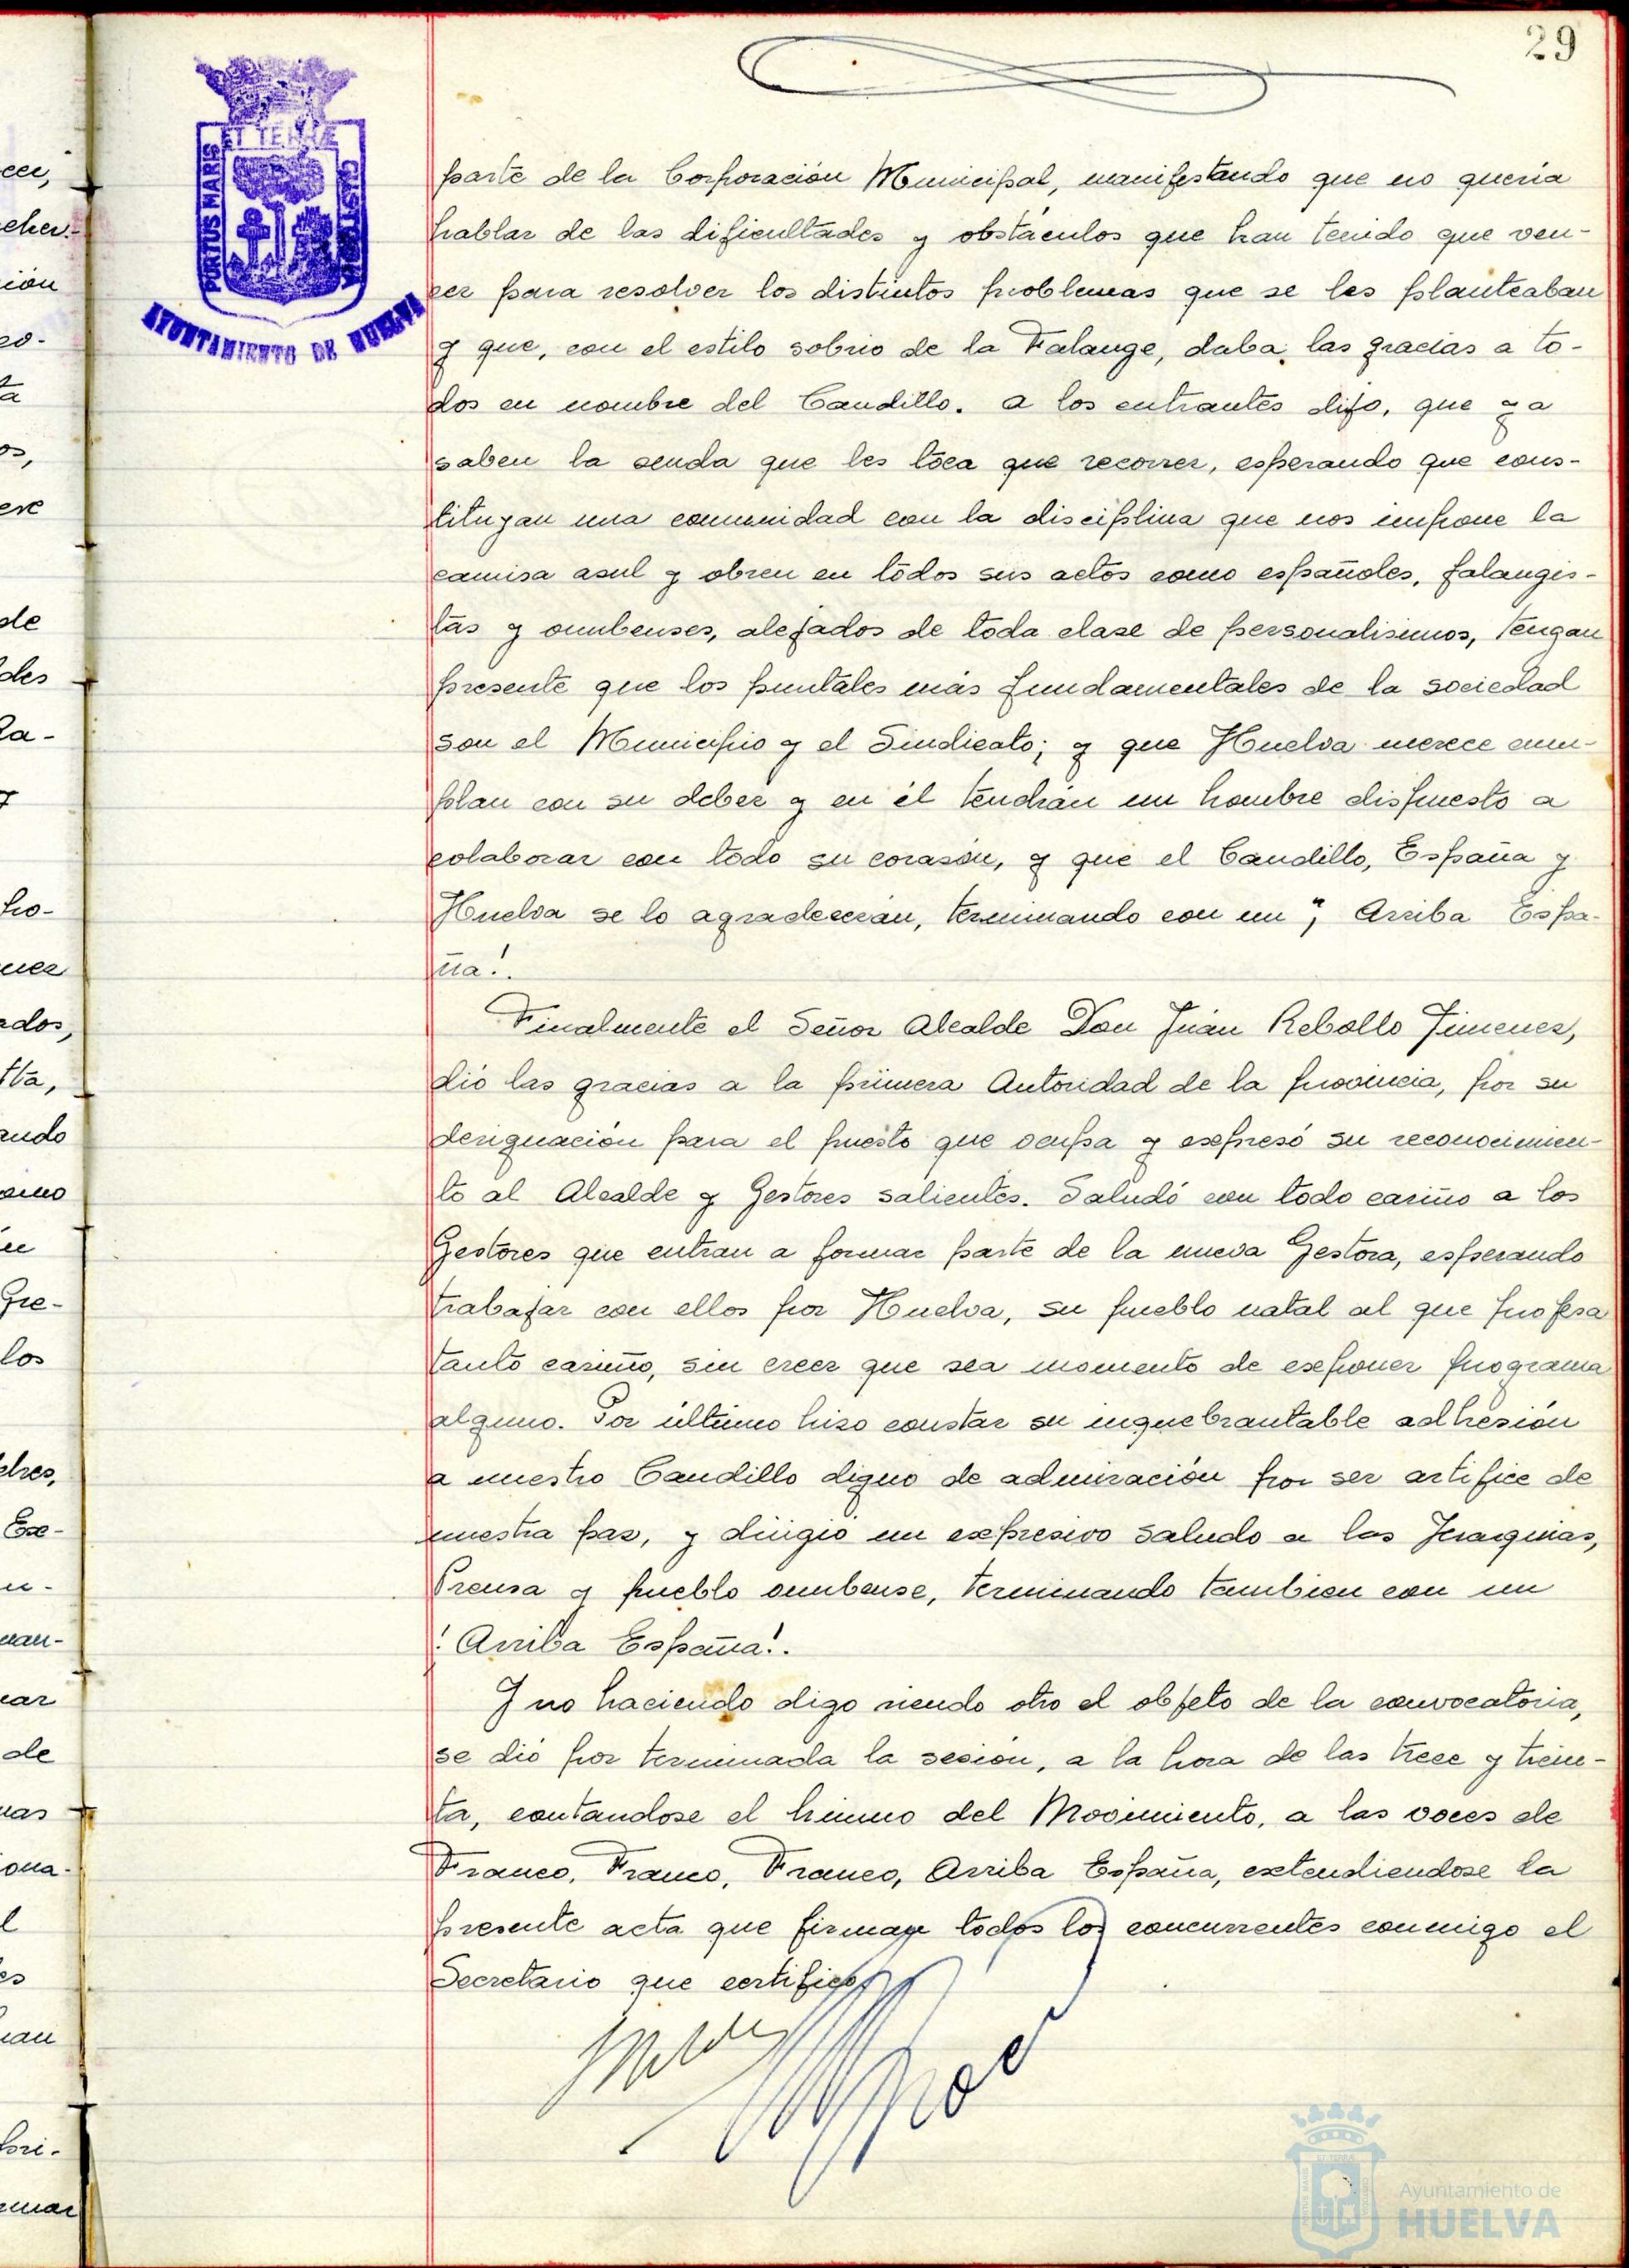 29
ET TERRÆ
PORTUS MARIS
CUSTODIA
AYUNTAMIENTO DE HUELVA
parte de la Corporación Municipal, manifestando que no quería
hablar de las dificultades y obstáculos que han tenido que ven-
cer para resolver los distintos problemas que se les planteaban
y que, con el estilo sobrio de la Falange, daba las gracias a to-
dos en nombre del Caudillo. A los entrantes dijo, que ya
saben la senda que les toca que recorrer, esperando que cons-
tituyan una comunidad con la disciplina que nos impone la
camisa asul y obren en todos sus actos como españoles, falangis-
tas y onubenses, alejados de toda clase de personalismos, tengan
presente que los puntales más fundamentales de la sociedad
son el Municipio y el Sindicato; y que Huelva merece cum-
plan con su deber y en él tendrán un hombre dispuesto a
colaborar con todo su corasón, y que el Caudillo, España y
Huelva se lo agradecerán, terminando con un "¡ Arriba Espa-
ña!.
Finalmente el Señor Alcalde Don Juán Rebollo Jimenez,
dió las gracias a la primera Autoridad de la provincia, por su
designación para el puesto que ocupa y expresó su reconocimien-
to al Alcalde y Gestores salientes. Saludó con todo cariño a los
Gestores que entran a formar parte de la nueva Gestora, esperando
trabajar con ellos por Huelva, su pueblo natal al que profesa
tanto cariño, sin creer que sea momento de exponer programa
alguno. Por último hiso constar su inquebrantable adhesión
a nuestro Caudillo digno de admiración por ser artifice de
nuestra paz, y dirigió un expresivo saludo a las Jerarquias,
Prensa y pueblo onubense, terminando tambien con un
! Arriba España!.
Y no haciendo digo siendo otro el objeto de la convocatoria,
se dió por terminada la sesión, a la hora de las trece y trein-
ta, cantandose el himno del Movimiento, a las voces de
Franco, Franco, Franco, Arriba España, extendiendose la
presente acta que firman todos los concurrentes conmigo el
Secretario que certifico
Ayuntamiento de
HUELVA